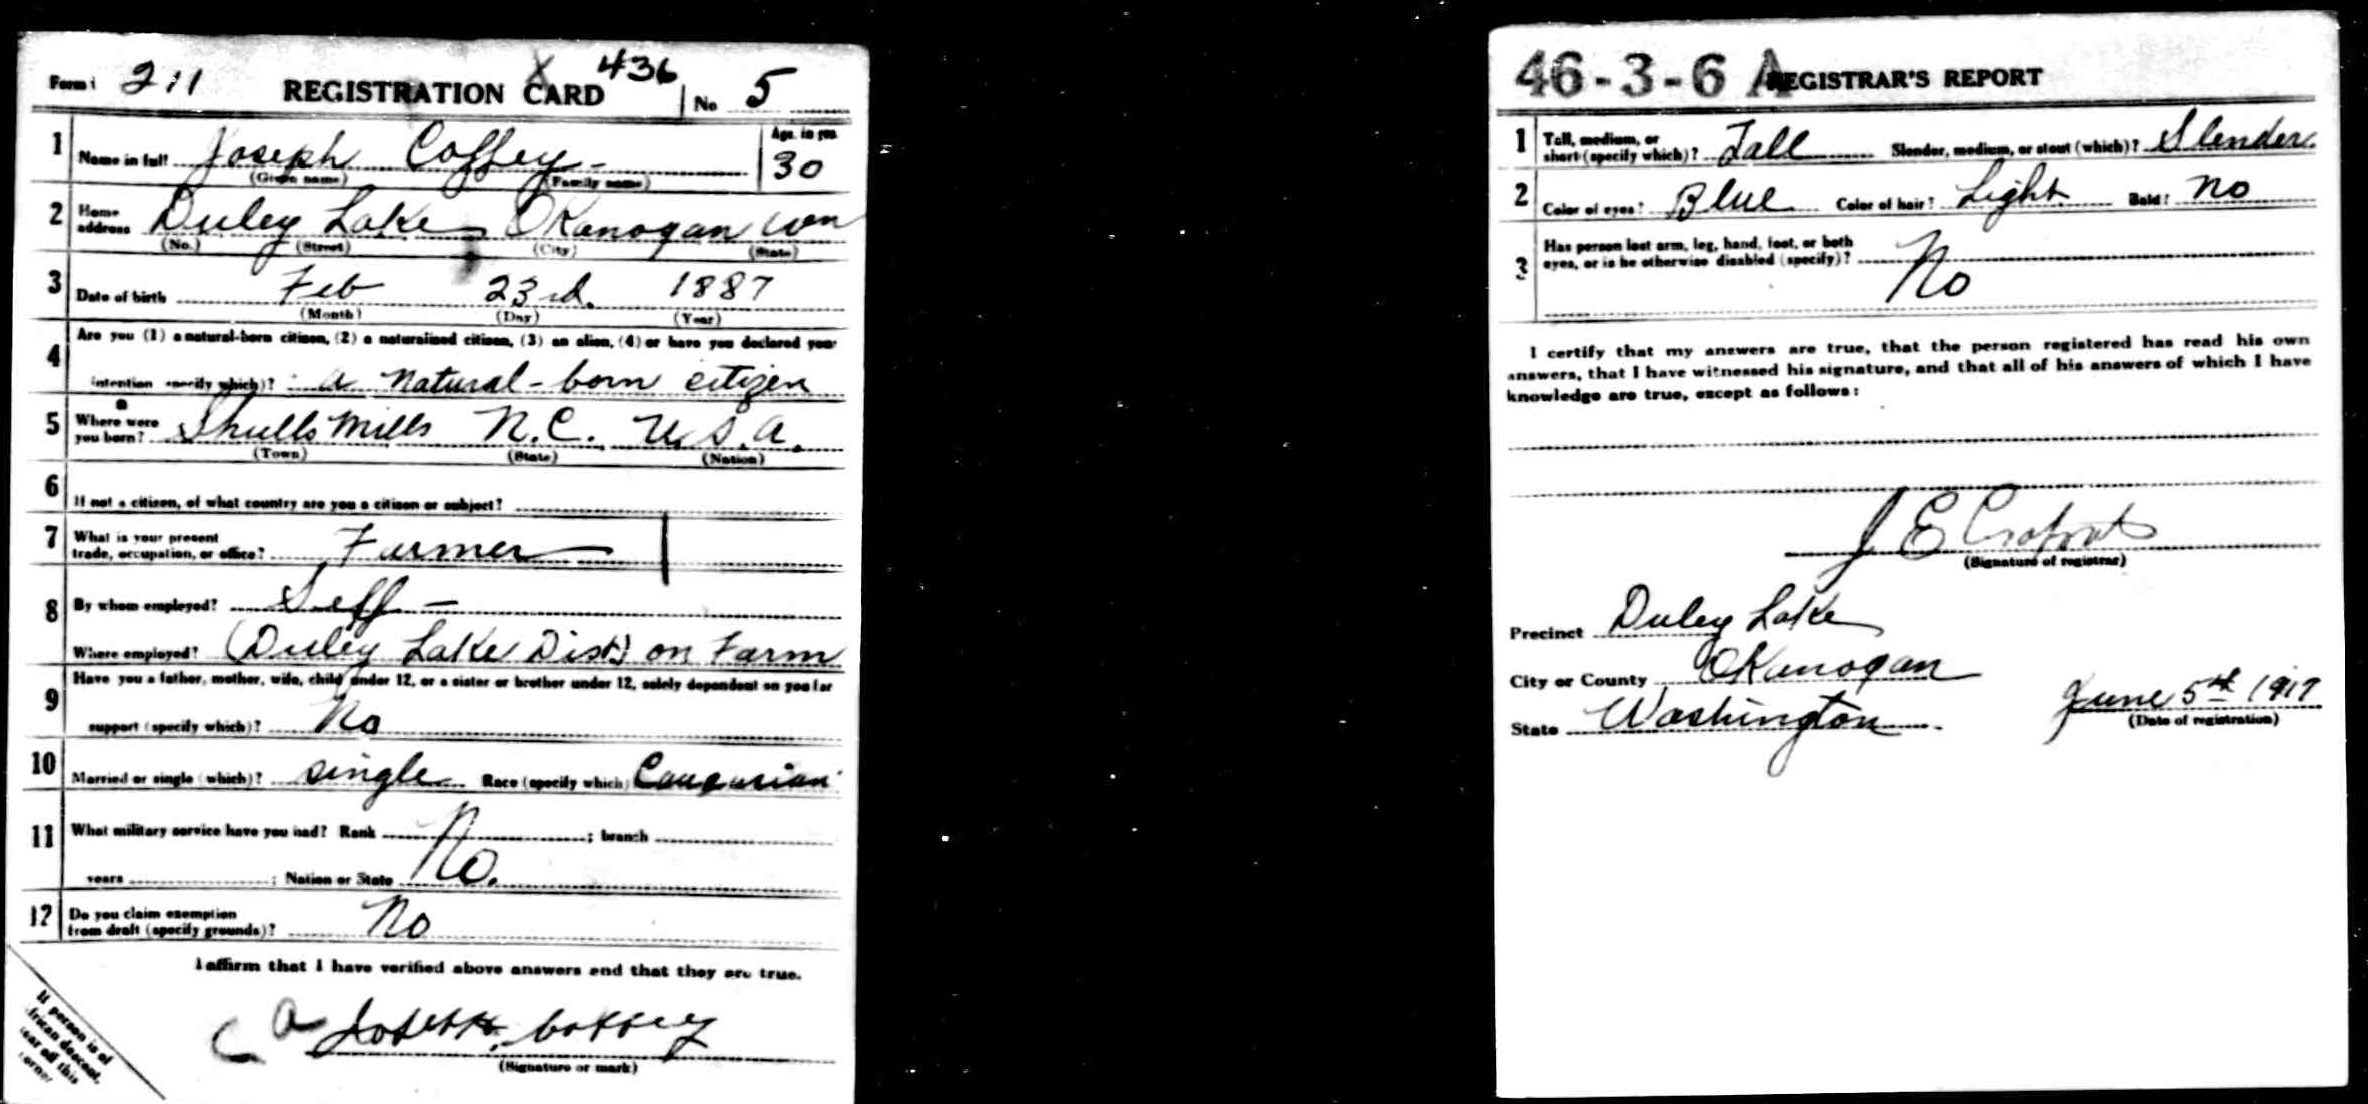 Form 1 211 REGISTRATION CARD X 436 No 5
1 Name in full Joseph Coffey Age, in yrs 30
(Given name) (Family name)
2 Home address Duley Lake Okanogan Wn
(No.) (Street) (City) (State)
3 Date of birth Feb 23rd. 1887
(Month) (Day) (Year)
4 Are you (1) a natural-born citizen, (2) a naturalized citizen, (3) an alien, (4) or have you declared your
intention (specify which)? a natural-born citizen
5 Where were you born? Shulls Mills N.C. U.S.A.
(Town) (State) (Nation)
6 If not a citizen, of what country are you a citizen or subject?
7 What is your present
trade, occupation, or office? Farmer
8 By whom employed? Self -
Where employed? (Duley Lake Dist) on Farm
9 Have you a father, mother, wife, child under 12, or a sister or brother under 12, solely dependent on you for
support (specify which)? No
10 Married or single (which)? single Race (specify which) Caucasian
11 What military service have you had? Rank No. ; branch
years ; Nation or State
12 Do you claim exemption
from draft (specify grounds)? No
I affirm that I have verified above answers and that they are true.
Joseph Coffey
(Signature or mark)
If person is of
African descent,
tear off this
corner
46-3-6 A REGISTRAR'S REPORT
1 Tall, medium, or
short (specify which)? Tall Slender, medium, or stout (which)? Slender.
2 Color of eyes? Blue Color of hair? Light Bald? No
3 Has person lost arm, leg, hand, foot, or both
eyes, or is he otherwise disabled (specify)? No
I certify that my answers are true, that the person registered has read his own
answers, that I have witnessed his signature, and that all of his answers of which I have
knowledge are true, except as follows:
J E
(Signature of registrar)
Precinct Duley Lake
City or County Okanogan
State Washington June 5th 1917
(Date of registration)